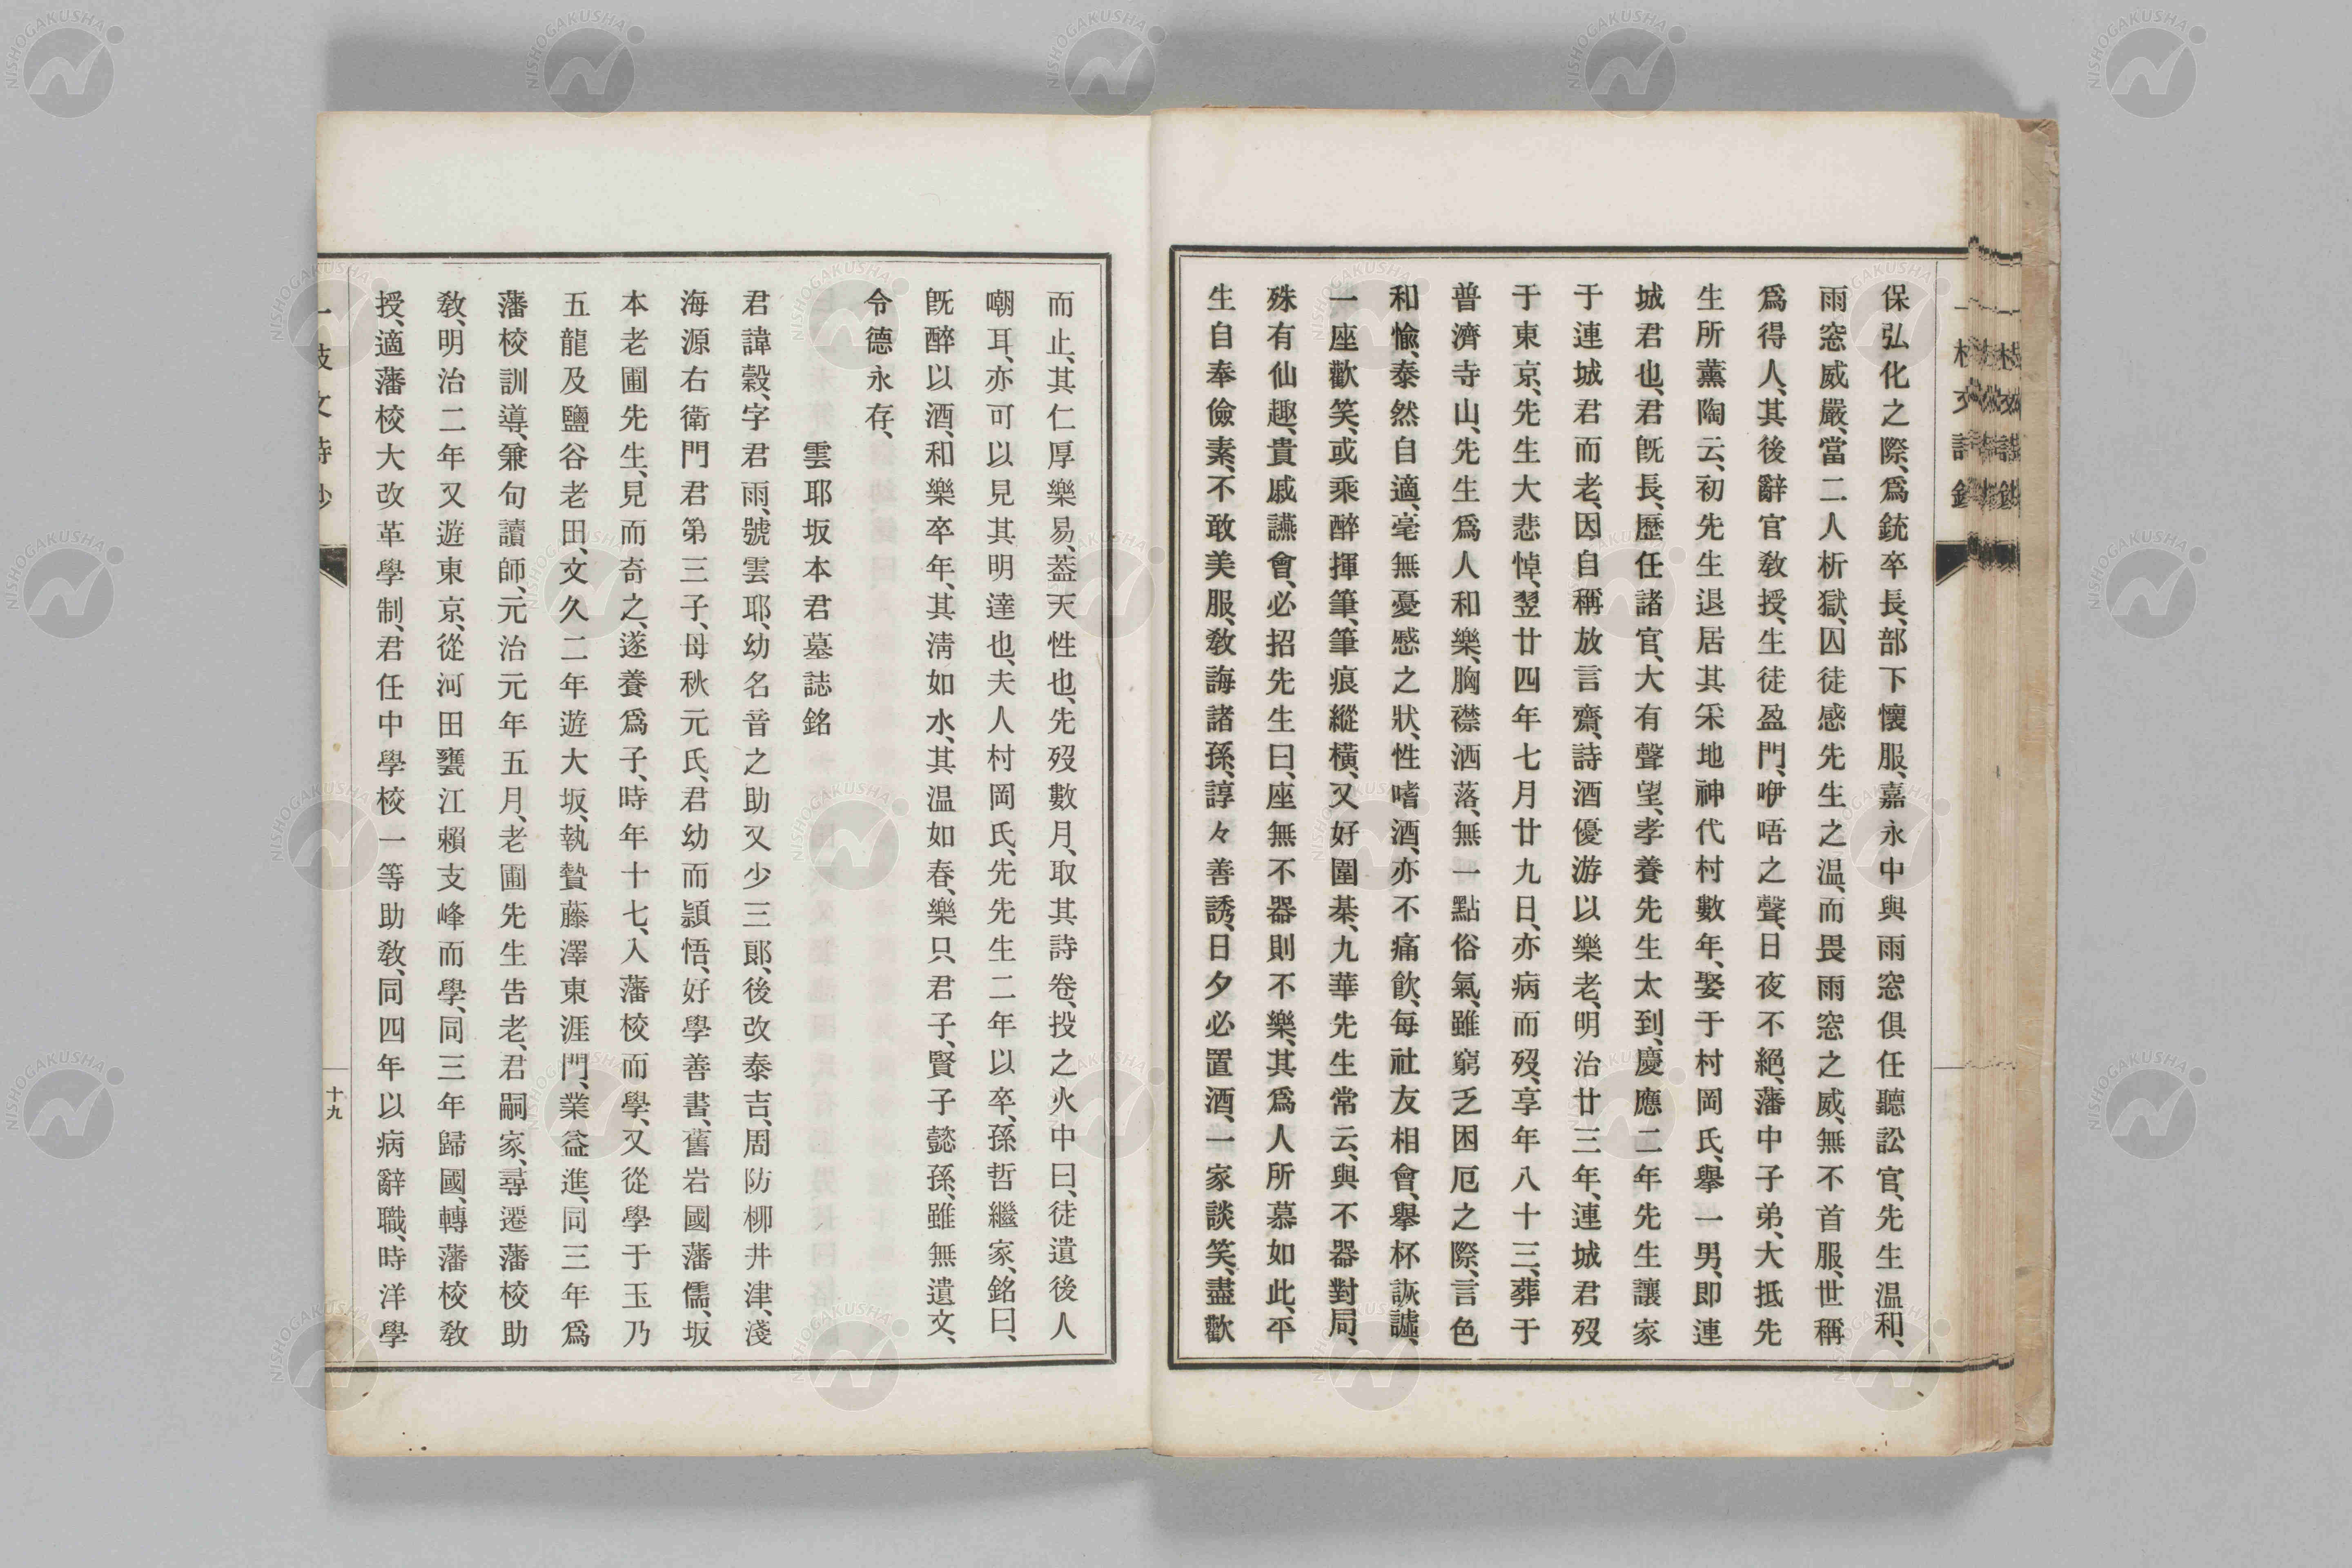 保弘化之際、爲銃卒長、部下懷服、嘉永中與雨窓俱任聽訟官、先生温和、
雨窓威嚴、當二人析獄、囚徒感先生之温、而畏雨窓之威、無不首服、世稱
爲得人、其後辭官教授、生徒盈門、咿唔之聲、日夜不絕、藩中子弟、大抵先
生所薰陶云、初先生退居其釆地神代村數年、娶于村岡氏、擧一男、即連
城君也、君既長、歷任諸官、大有聲望、孝養先生太到、慶應二年先生讓家
于連城君而老、因自稱放言齋、詩酒優游以樂老、明治廿三年、連城君歿
于東京、先生大悲悼、翌廿四年七月廿九日、亦病而歿、享年八十三、葬于
普濟寺山、先生爲人和樂、胸襟洒落、無一點俗氣、雖窮乏困厄之際、言色
和愉、泰然自適、毫無憂慼之狀、性嗜酒、亦不痛飮、每社友相會、擧杯詼謔、
一座歡笑、或乘醉揮筆、筆痕縱橫、又好圍棊、九華先生常云、與不器對局、
殊有仙趣、貴戚讌會、必招先生曰、座無不器則不樂、其爲人所慕如此、平
生自奉儉素、不敢美服、敎誨諸孫、諄々善誘、日夕必置酒、一家談笑、盡歡
而止、其仁厚樂易、葢天性也、先歿數月、取其詩卷、投之火中曰、徒遺後人
嘲耳、亦可以見其明達也、夫人村岡氏、先先生二年以卒、孫哲繼家、銘曰、
既醉以酒、和樂卒年、其淸如水、其温如春、樂只君子、賢子懿孫、雖無遺文、
令德永存、
雲耶坂本君墓誌銘
君諱穀、字君雨、號雲耶、幼名音之助又少三郎、後改泰吉、周防柳井津、淺
海源右衛門君第三子、母秋元氏、君幼而頴悟、好學善書、舊岩國藩儒、坂
本老圃先生、見而奇之、遂養爲子、時年十七、入藩校而學、又從學于玉乃
五龍及鹽谷老田、文久二年遊大坂、執贄藤澤東涯門、業益進、同三年爲
藩校訓導、兼句讀師、元治元年五月、老圃先生告老、君嗣家、尋遷藩校助
敎、明治二年又遊東京、從河田甕江賴支峰而學、同三年歸國、轉藩校敎
授、適藩校大改革學制、君任中學校一等助敎、同四年以病辭職、時洋學
十九